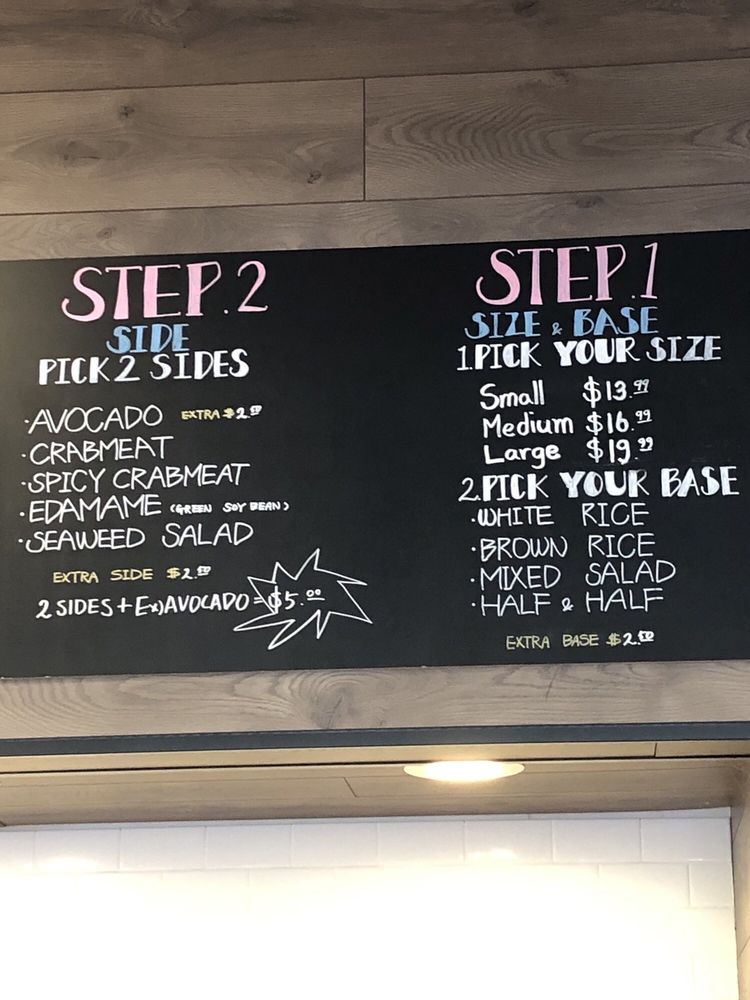 STEP.2
SIDE
PICK 2 SIDES
·AVOCADO EXTRA $2.50
·CRABMEAT
·SPICY CRABMEAT
·EDAMAME (GREEN SOY BEAN)
·SEAWEED SALAD
EXTRA SIDE $2.50
2 SIDES + Ex)AVOCADO = $5.00
STEP.1
SIZE & BASE
1.PICK YOUR SIZE
Small $13.99
Medium $16.99
Large $19.99
2.PICK YOUR BASE
·WHITE RICE
·BROWN RICE
·MIXED SALAD
·HALF & HALF
EXTRA BASE $2.50